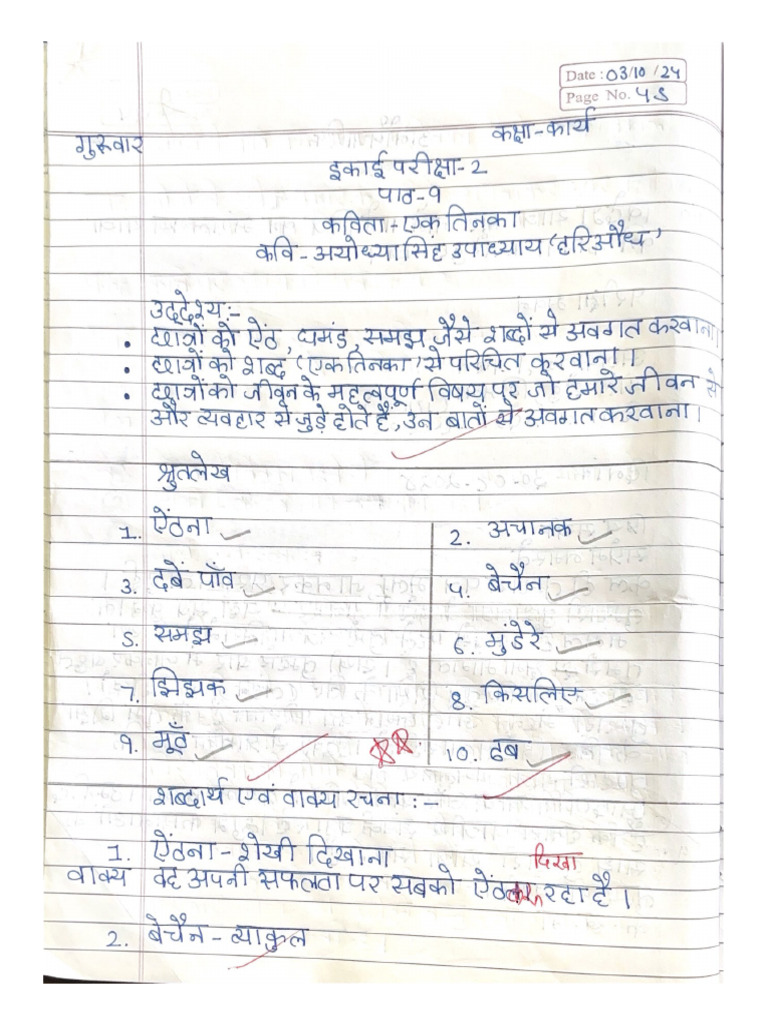 Date : 03/10/24
Page No. 45
गुरुवार
कक्षा-कार्य
इकाई परीक्षा-2
पाठ-9
कविता - एक तिनका
कवि - अयोध्या सिंह उपाध्याय 'हरिऔध'
उद्देश्य:-
• छात्रों को ऐंठ, घमंड, समझ जैसे शब्दों से अवगत करवाना।
• छात्रों को शब्द 'एक तिनका' से परिचित करवाना।
• छात्रों को जीवन के महत्वपूर्ण विषय पर जो हमारे जीवन से
और व्यवहार से जुड़े होते हैं, उन बातों से अवगत करवाना।
श्रुतलेख
1. ऐंठना 2. अचानक
3. दबें पाँव 4. बेचैन
5. समझ 6. मुंडेरे
7. झिझक 8. किसलिए
9. मूँठ 10. ढब
शब्दार्थ एवं वाक्य रचना :-
1. ऐंठना - शेखी दिखाना
दिखा
वाक्य वह अपनी सफलता पर सबको ऐंठ रहा है।
2. बेचैन - व्याकुल